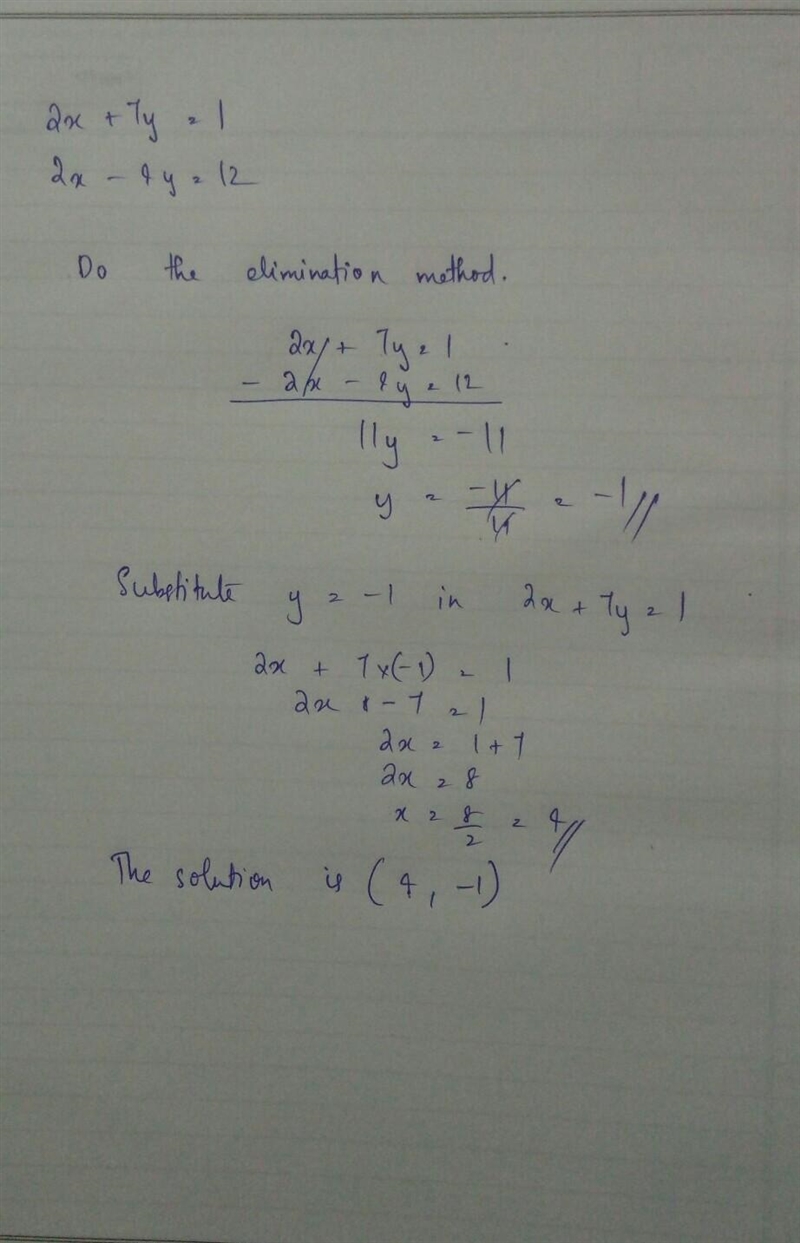 2x + 7y = 1
2x - 4y = 12
Do the elimination method.
2x + 7y = 1
- 2x - 4y = 12
11y = -11
y = -11/11 = -1//
Substitute y = -1 in 2x + 7y = 1
2x + 7x(-1) = 1
2x - 7 = 1
2x = 1 + 7
2x = 8
x = 8/2 = 4//
The solution is (4, -1)